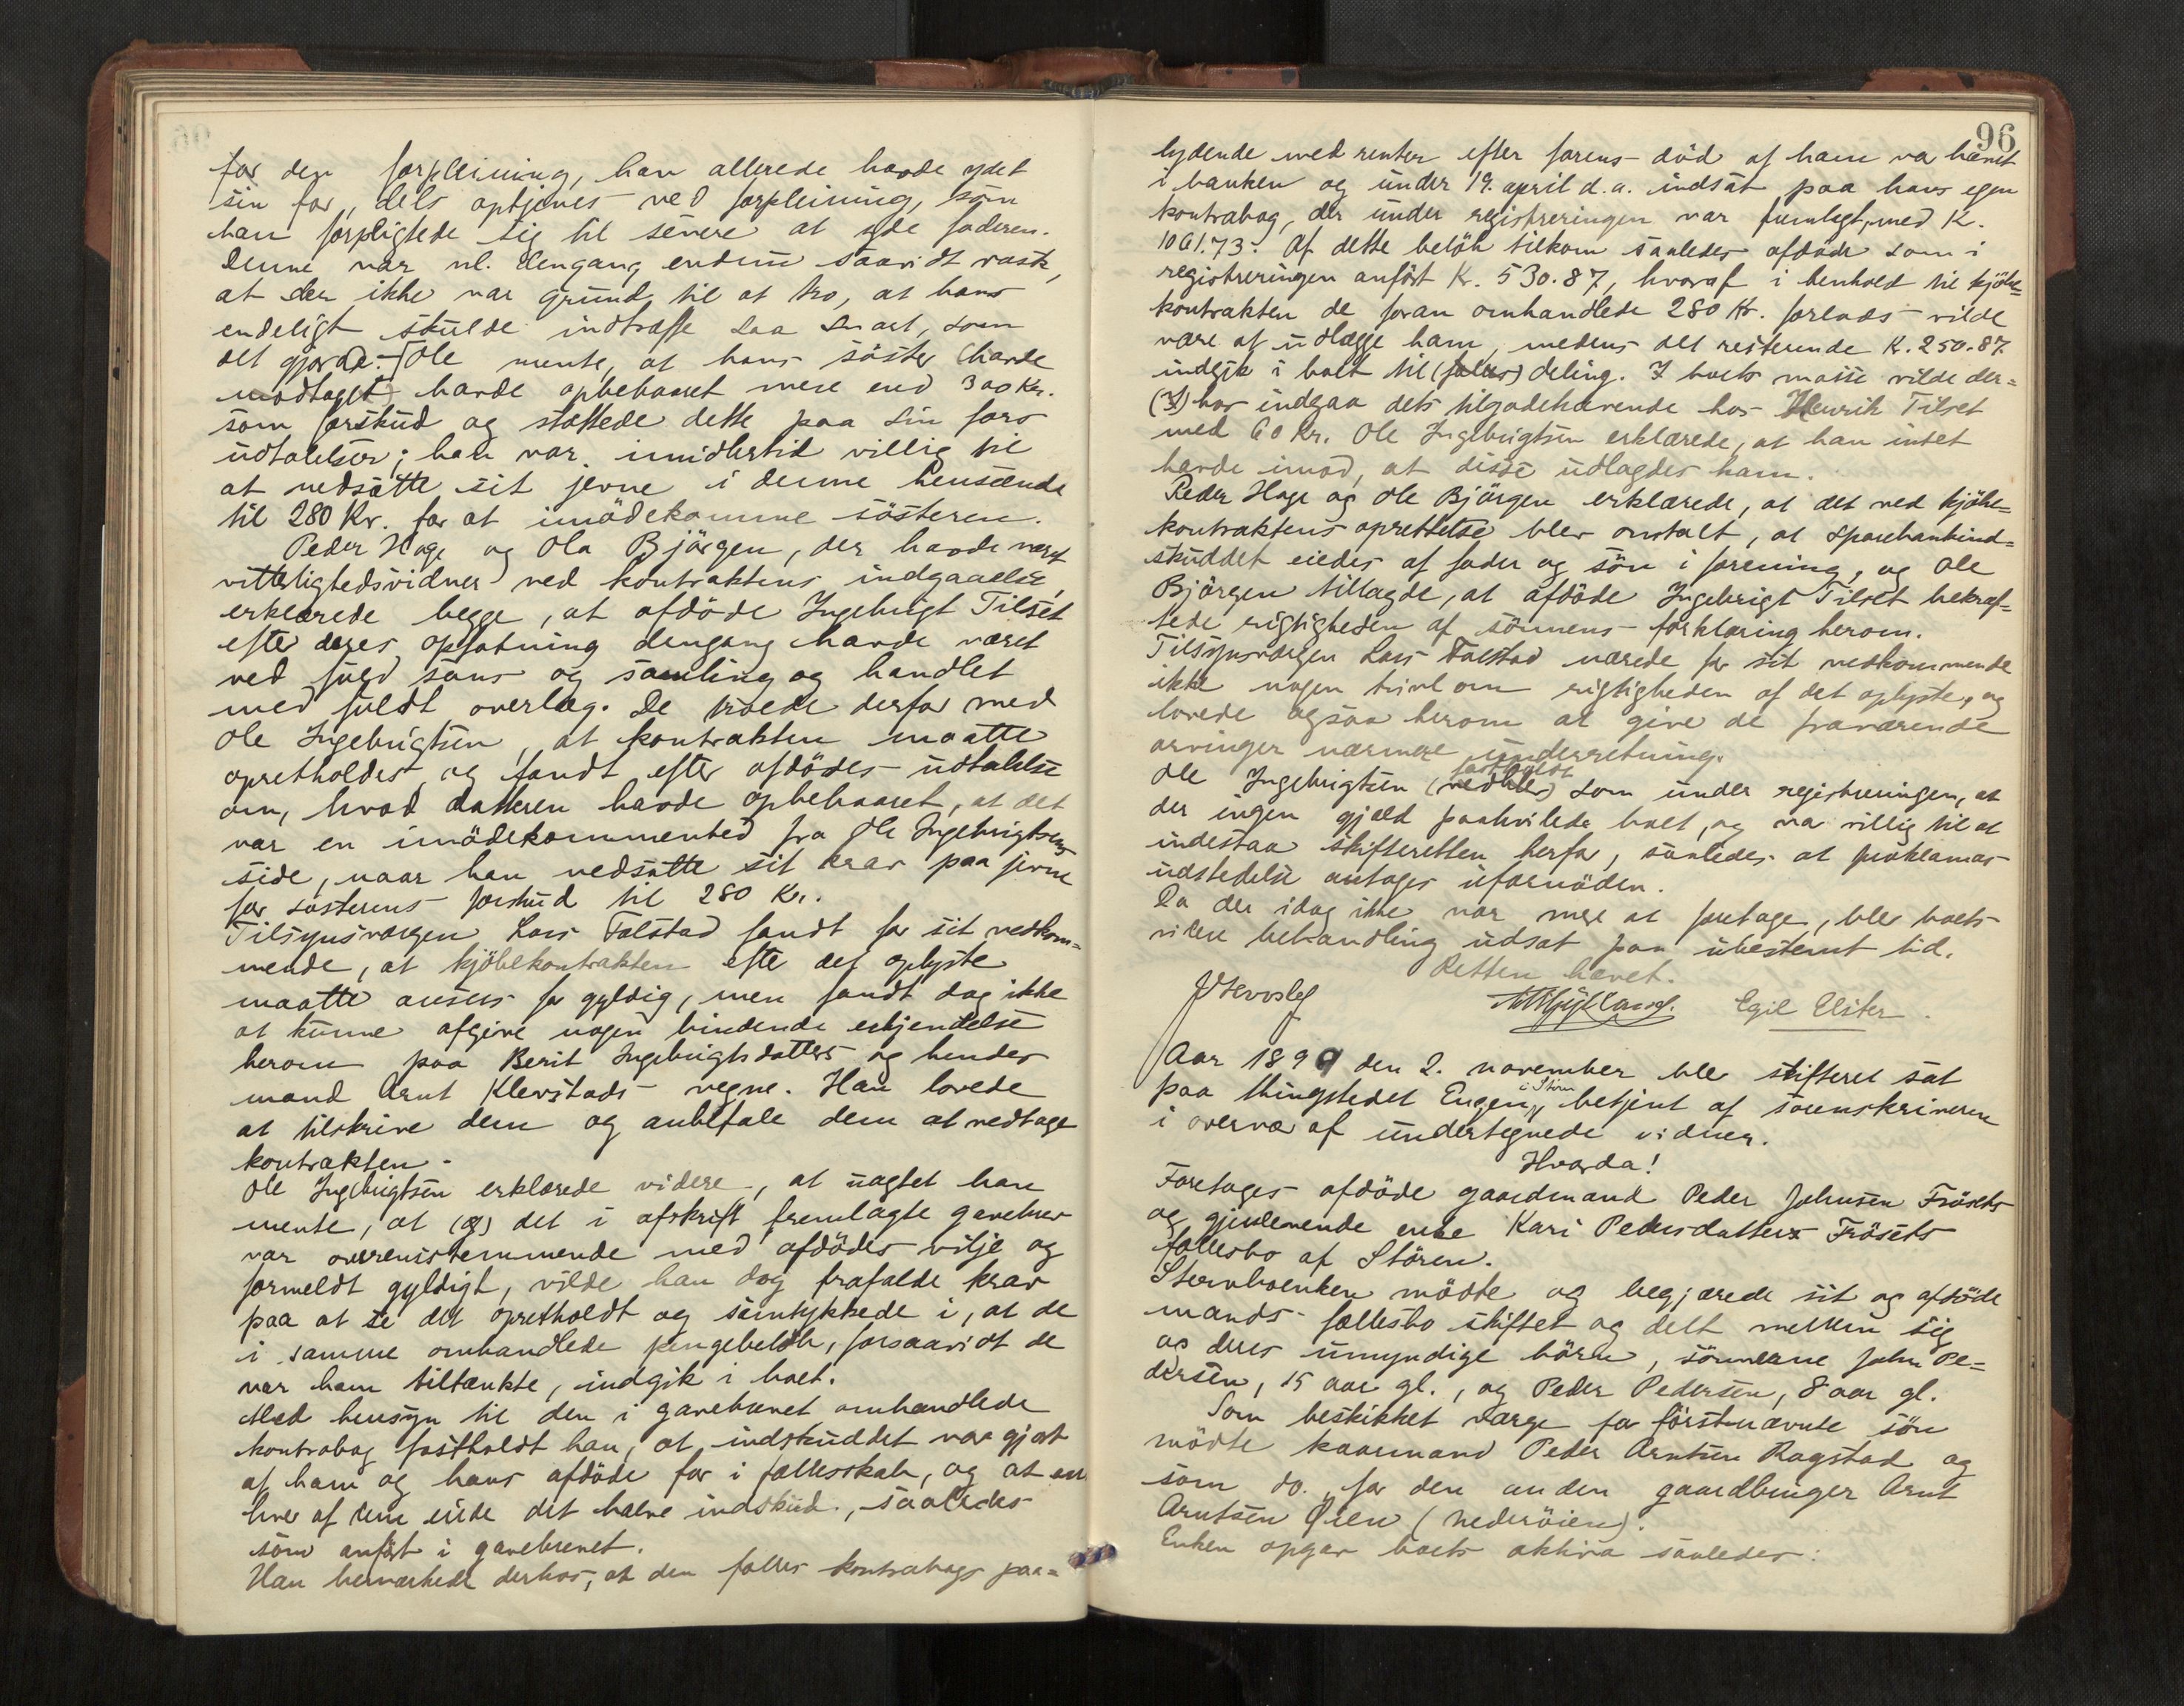 for den forpleining, han allerede havde ydet
sin far, dels optjenes ved forpleining, som
han forpligtede sig til senere at yde faderen.
Denne var nl. dengang endnu saavidt rask,
at der ikke var grund til at tro, at hans
endeligt skulde indtræffe saa snart, som
det gjorde. - Ole mente, at hans søster (havde
modtaget) havde opbebaaret mere end 300 Kr.
som forskud og støttede dette paa sin fars
udtalelser; han var imidlertid villig til
at nedsætte sit jevne i denne henseende
til 280 Kr. for at imødekomme søsteren.
Peder Hage og Ola Bjørgen, der havde været
vitterlighedsvidner ved kontraktens indgaaelse,
erklærede begge, at afdøde Ingebrigt Tilset
efter deres opfatning dengang havde været
ved fuld sans og samling og handlet
med fuldt overlæg. De troede derfor med
Ole Ingebrigtsen, at kontrakten maatte
opretholdes og fandt efter afdødes udtalelse
om, hvad datteren havde opbebaaret, at det
var en imødekommenhed fra Ole Ingebrigtsens
side, naar han nedsatte sit krav paa jevne
for søsterens forskud til 280 Kr.
Tilsynsværgen Lars Folstad fandt for sit vedkom=
mende, at kjøbekontrakten efter det oplyste
maatte ansees for gyldig, men fandt dog ikke
at kunne afgive nogen bindende erkjendelse
herom paa Berit Ingebrigtsdatters og hendes
mand Arnt Klevstads vegne. Han lovede
at tilskrive dem og anbefale dem at vedtage
kontrakten.
Ole Ingebrigtsen erklærede videre, at uagtet han
mente, at (g) det i afskrift fremlagte gavebrev
var overensstemmende med afdødes vilje og
formeldt gyldigt, vilde han dog frafalde krav
paa at se det opretholdt og samtykkede i, at de
i samme omhandlede pengebeløb, forsaavidt de
var ham tiltænkte, indgik i boet.
Med hensyn til den i gavebrevet omhandlede
kontrabog fastholdt han, at indskuddet var gjort
af ham og hans afdøde far i fællesskab, og at en
hver af dem eiede det halve indskud, saaledes
som anført i gavebrevet.
Han bemærkede derhos, at den fælles kontrabogs paa=
96
lydende med renter efter farens død af ham var hævet
i banken og under 19. april d.a. indsat paa hans egen
kontrabog, der under registreringen var fremlagt, med K.
1061.73. Af dette beløb tilkom saaledes afdøde som i
registreringen anført Kr. 530.87, hvoraf i henhold til kjøbe=
kontrakten de foran omhandlede 280 Kr. forlods vilde
være at udlægge ham, medens det resterende Kr. 250.87
indgik i boet til (fælles) deling. I boets masse vilde der=
(I) hos indgaa dets tilgodehavende hos Henrik Tilset
med 60 Kr. Ole Ingebrigtsen erklærede, at han intet
havde imod, at disse udlagdes ham.
Peder Hage og Ole Bjørgen erklærede, at det ved kjøbe=
kontraktens oprettelse blev omtalt, at sparebankind=
skuddet eiedes af fader og søn i forening, og Ole
Bjørgen tillagde, at afdøde Ingebrigt Tilset bekræf=
tede rigtigheden af sønnens forklaring herom.
Tilsynsværgen Lars Folstad nærede for sit vedkommende
ikke nogen tvivl om rigtigheden af det oplyste, og
lovede ogsaa herom at give de fraværende
arvinger nærmere underretning.
fastholdt
Ole Ingebrigtsen (vedblev) som under registreringen, at
der ingen gjæld paahvilede boet, og var villig til at
indestaa skifteretten herfor, saaledes at proklamas
udstedelse antages ufornøden.
Da der idag ikke var mere at foretage, blev boets
videre behandling udsat paa ubestemt tid.
Retten hævet.
Egil Elster.
Aar 1899 den 2. november blev skifteret sat
i Støren
paa thingstedet Engen, betjent af sorenskriveren
i overvær af undertegnede vidner.
Hvorda!
Foretages afdøde gaardmand Peder Johnsen Frøsets
og gjenlevende enke Kari Pedersdatters Frøsets
fællesbo af Støren.
Stervboenken mødte og begjærede sit og afdøde
mands fællesbo skiftet og delt mellem sig
og deres umyndige børn, sønnerne John Pe=
dersen, 15 aar gl., og Peder Pedersen, 8 aar gl.
Som beskikket værge for førstnævnte søn
mødte kaarmand Peder Arntsen Rogstad og
som do. for den anden gaardbruger Arnt
Arntsen Øien (Nederøien).
Enken opgav boets aktiva saaledes: